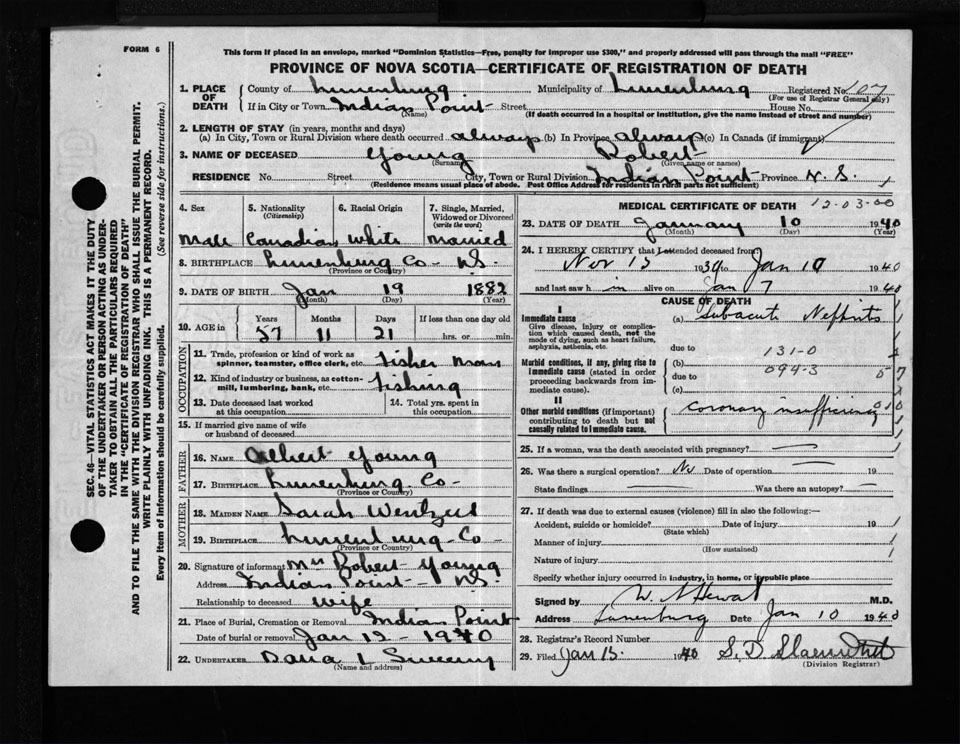 FORM 6
This form if placed in an envelope, marked "Dominion Statistics—Free, penalty for improper use $300," and properly addressed will pass through the mail "FREE"
PROVINCE OF NOVA SCOTIA—CERTIFICATE OF REGISTRATION OF DEATH
SEC. 46—VITAL STATISTICS ACT MAKES IT THE DUTY
OF THE UNDERTAKER OR PERSON ACTING AS UNDER-
TAKER TO OBTAIN ALL THE PARTICULARS REQUIRED
IN THE "CERTIFICATE OF REGISTRATION OF DEATH"
AND TO FILE THE SAME WITH THE DIVISION REGISTRAR WHO SHALL ISSUE THE BURIAL PERMIT.
WRITE PLAINLY WITH UNFADING INK. THIS IS A PERMANENT RECORD.
Every item of information should be carefully supplied. (See reverse side for instructions.)
1. PLACE OF DEATH County of Lunenburg Municipality of Lunenburg Registered No. 107
(For use of Registrar General only)
If in City or Town Indian Point Street House No.
(Name) (If death occurred in a hospital or institution, give the name instead of street and number)
2. LENGTH OF STAY (in years, months and days)
(a) In City, Town or Rural Division where death occurred always (b) In Province always (c) In Canada (if immigrant)
3. NAME OF DECEASED Young Robert
(Surname) (Given name or names)
RESIDENCE No. Street City, Town or Rural Division Indian Point Province N.S.
(Residence means usual place of abode. Post Office Address for residents in rural parts not sufficient)
4. Sex 5. Nationality (Citizenship) 6. Racial Origin 7. Single, Married, Widowed or Divorced (write the word)
Male Canadian White Married
8. BIRTHPLACE Lunenburg Co NS.
(Province or Country)
9. DATE OF BIRTH Jan 19 1882
(Month) (Day) (Year)
10. AGE in Years Months Days If less than one day old
57 11 21 hrs. or min.
OCCUPATION
11. Trade, profession or kind of work as spinner, teamster, office clerk, etc. Fisher Man
12. Kind of industry or business, as cotton-mill, lumbering, bank, etc. Fishing
13. Date deceased last worked at this occupation 14. Total yrs. spent in this occupation
15. If married give name of wife or husband of deceased
FATHER
16. NAME Albert Young
17. BIRTHPLACE Lunenburg Co
(Province or Country)
MOTHER
18. MAIDEN NAME Sarah
19. BIRTHPLACE Lunenburg Co
(Province or Country)
20. Signature of informant Mrs Robert Young
Address Indian Point NS
Relationship to deceased wife
21. Place of Burial, Cremation or Removal Indian Point
Date of burial or removal Jan 12 - 1940
22. UNDERTAKER L Sweeny
(Name and address)
MEDICAL CERTIFICATE OF DEATH
12-03-00
23. DATE OF DEATH January 10 1940
(Month) (Day) (Year)
24. I HEREBY CERTIFY that I attended deceased from
Nov 13 19 to Jan 10 1940
and last saw h im alive on Jan 7 1940
CAUSE OF DEATH
Immediate cause
Give disease, injury or complication which caused death, not the mode of dying, such as heart failure, asphyxia, asthenia, etc.
(a) Subacute Nephritis
due to 131-0
Morbid conditions, if any, giving rise to immediate cause (stated in order proceeding backwards from immediate cause).
(b) 094-3 57
due to
(c)
II
Other morbid conditions (if important) contributing to death but not causally related to immediate cause.
coronary insufficiency
25. If a woman, was the death associated with pregnancy?
26. Was there a surgical operation? No Date of operation 19
State findings Was there an autopsy?
27. If death was due to external causes (violence) fill in also the following:—
Accident, suicide or homicide? Date of injury 19
(State which)
Manner of injury
(How sustained)
Nature of injury
Specify whether injury occurred in industry, in home, or in public place
Signed by W. A Hewat M.D.
Address Lunenburg Date Jan 10 1940
28. Registrar's Record Number
29. Filed Jan 15. 1940 S. D.
(Division Registrar)